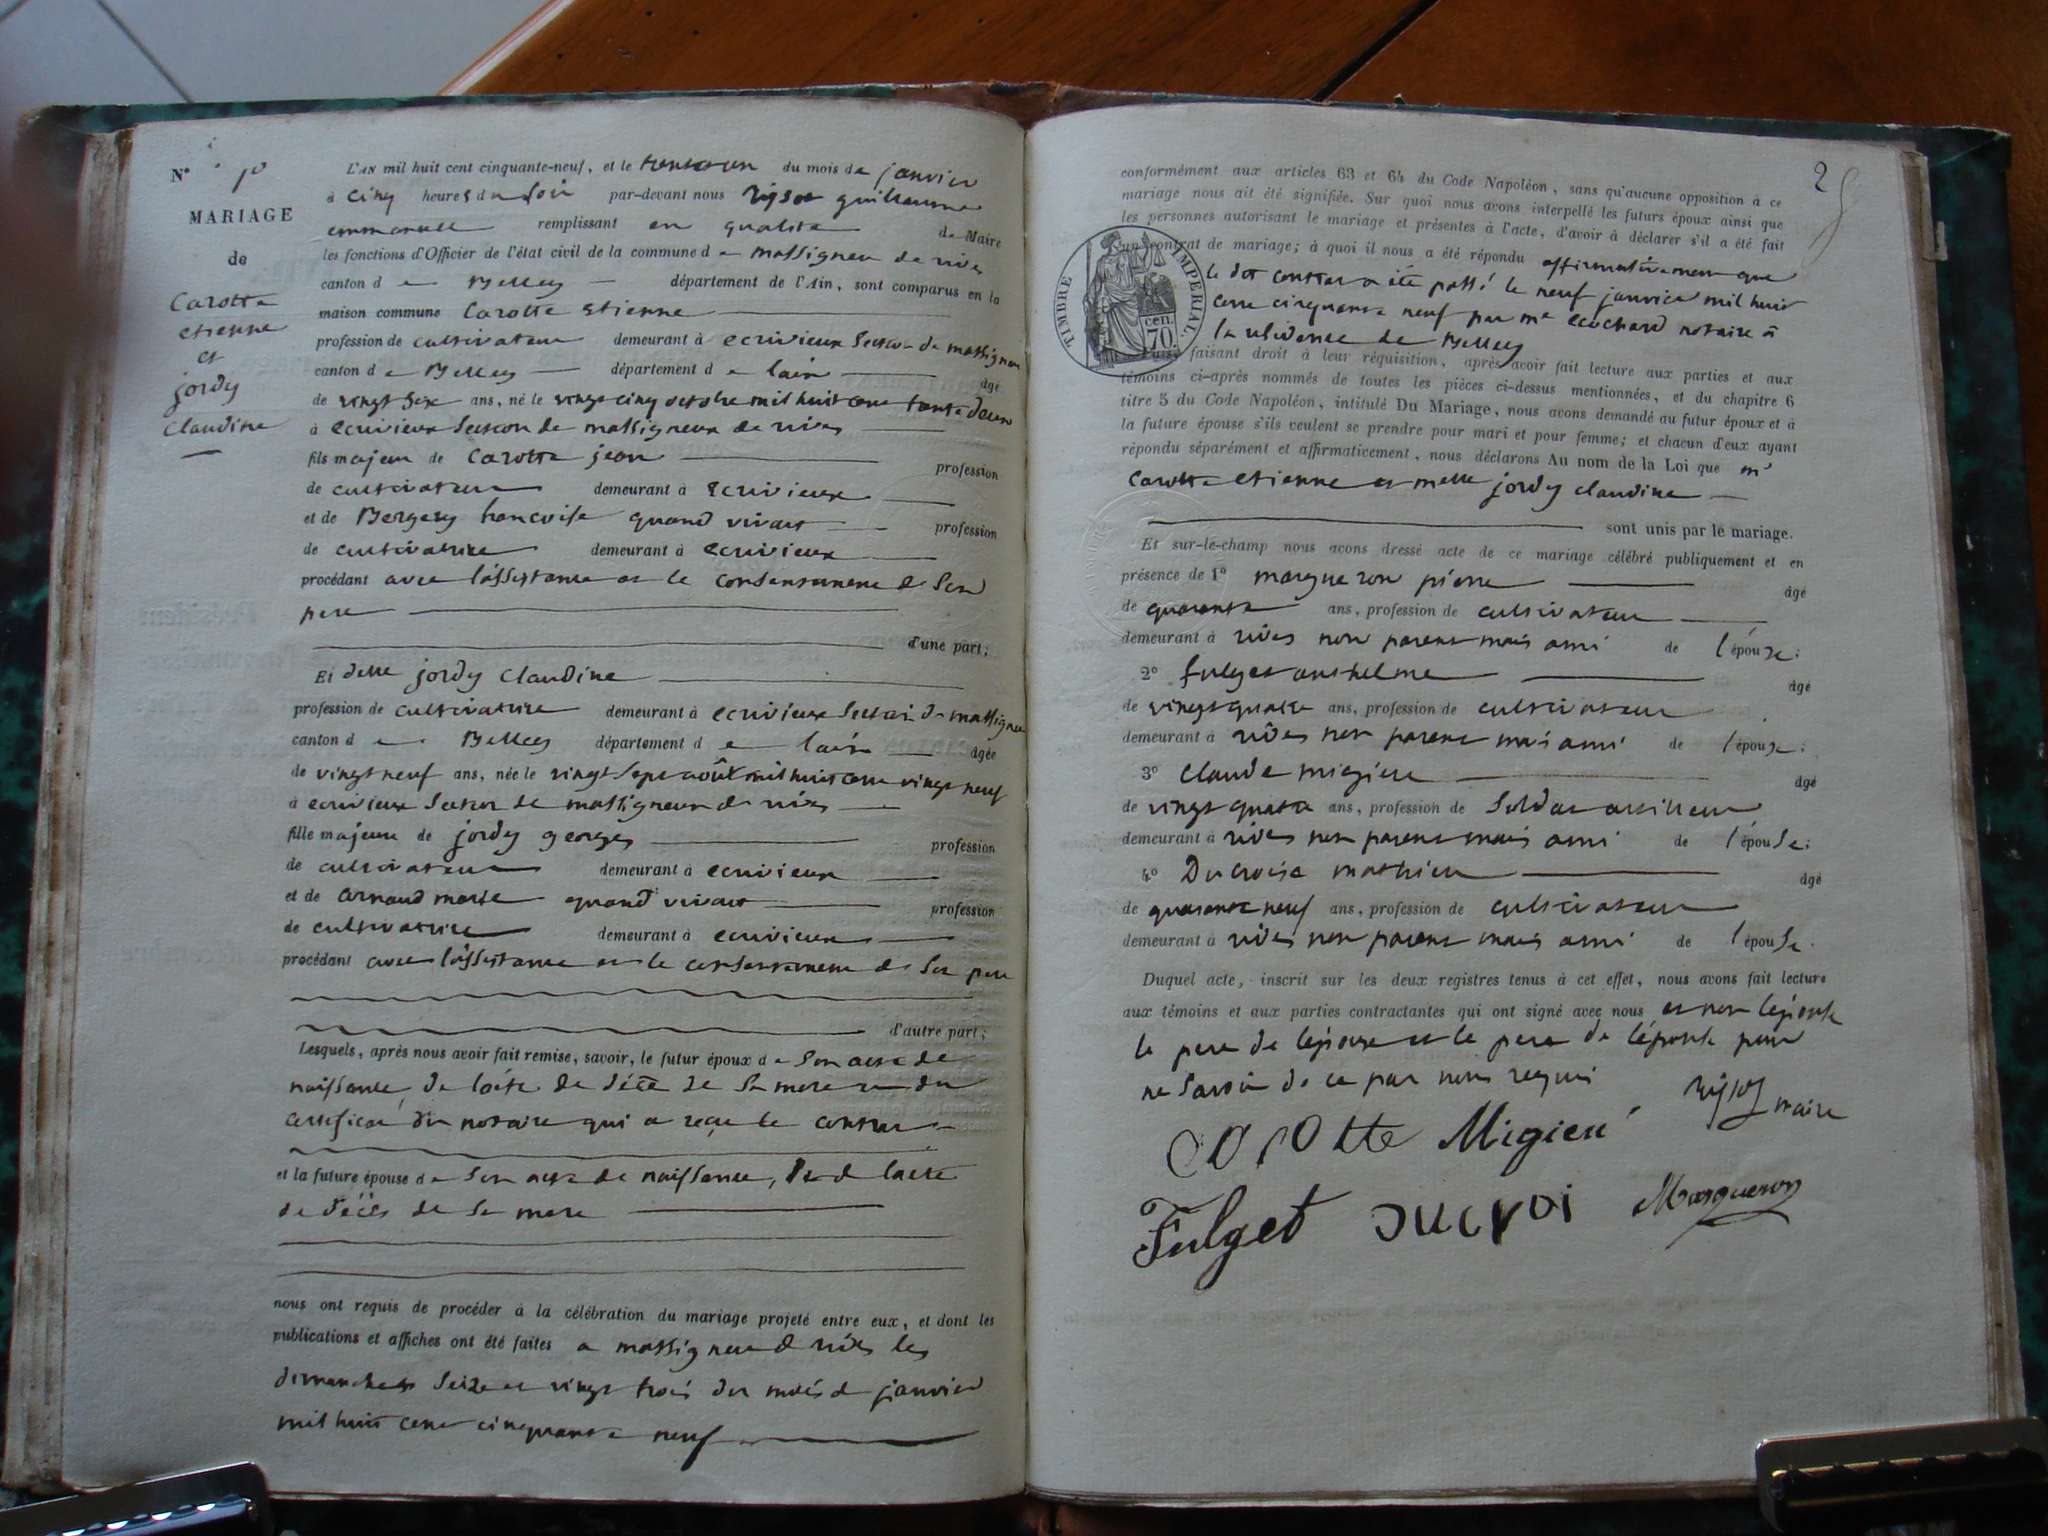 N°
MARIAGE
de
Carotte
etienne
et
jordy
claudine
L'AN mil huit cent cinquante-neuf, et le trente un du mois de janvier
à cinq heures du soir par-devant nous guillaume
emmanuel remplissant en qualité de Maire
les fonctions d'Officier de l'état civil de la commune de massigneu de rives
canton de Belley département de l'Ain, sont comparus en la
maison commune Carotte etienne
profession de cultivateur demeurant à ecrivieux section de massigneu
canton de Belley département de lain âgé
de vingt six ans, né le vingt cinq octobre mil huit cent trente deux
à ecrivieux section de massigneux de rives
fils majeur de Carotte jean profession
de cultivateur demeurant à ecrivieux
et de Bergery francoise quand vivait profession
de cultivatrice demeurant à ecrivieux
procédant avec l'assistance et le consentement de son
pere
d'une part;
Et delle jordy claudine
profession de cultivatrice demeurant à ecrivieux section de massigneu
canton de Belley département de lain âgée
de vingt neuf ans, née le vingt sept août mil huit cent vingt neuf
à ecrivieux section de massigneux de rives
fille majeure de jordy georges profession
de cultivateur demeurant à ecrivieux
et de arnaud marie quand vivait profession
de cultivatrice demeurant à ecrivieux
procédant avec l'assistance et le consentement de son pere
d'autre part;
Lesquels, après nous avoir fait remise, savoir, le futur époux de son acte de
naissance, de l'acte de décé de sa mere et du
certificat du notaire qui a reçu le contrat
et la future épouse de son acte de naissance, de lacte
de décès de sa mere
nous ont requis de procéder à la célébration du mariage projeté entre eux, et dont les
publications et affiches ont été faites a massigneu de rives les
dimanches seize et vingt trois du mois de janvier
mil huit cent cinquante neuf
2
conformément aux articles 63 et 64 du Code Napoléon, sans qu'aucune opposition à ce
mariage nous ait été signifiée. Sur quoi nous avons interpellé les futurs époux ainsi que
les personnes autorisant le mariage et présentes à l'acte, d'avoir à déclarer s'il a été fait
un contrat de mariage; à quoi il nous a été répondu affirmativement que
le dot contrat a été passé le neuf janvier mil huit
cent cinquante neuf par me ecochard notaire à
la residence de Belley
TIMBRE IMPERIAL.
cen.
70.
Puis, faisant droit à leur réquisition, après avoir fait lecture aux parties et aux
témoins ci-après nommés de toutes les pièces ci-dessus mentionnées, et du chapitre 6
titre 5 du Code Napoléon, intitulé Du Mariage, nous avons demandé au futur époux et à
la future épouse s'ils veulent se prendre pour mari et pour femme; et chacun d'eux ayant
répondu séparément et affirmativement, nous déclarons Au nom de la Loi que mr
Carotte etienne et melle jordy claudine
sont unis par le mariage.
Et sur-le-champ nous avons dressé acte de ce mariage célébré publiquement et en
présence de 1° margueron pierre âgé
de quarante ans, profession de cultivateur
demeurant à rives non parent mais ami de l'épouse;
2° fulget anthelme âgé
de vingt quatre ans, profession de cultivateur
demeurant à rives non parent mais ami de l'épouse;
3° Claude migieu âgé
de vingt quatre ans, profession de soldat artilleur
demeurant à rives non parent mais ami de l'épouse;
4° Ducroise mathieu âgé
de quarante neuf ans, profession de cultivateur
demeurant à rives non parent mais ami de l'épouse.
Duquel acte, inscrit sur les deux registres tenus à cet effet, nous avons fait lecture
aux témoins et aux parties contractantes qui ont signé avec nous et non l'épouse
le pere de l'epoux et le pere de l'épouse pour
ne savoir de ce par nous requis
maire
Carotte Migieu
Fulget Ducroi Margueron